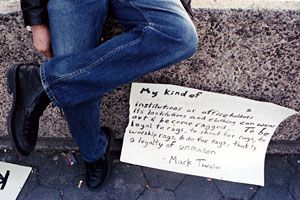 My kind of
institutions or officeholders
its institutions and clothing can wear
out & become ragged... To be
loyal to rags, to shout for rags, to
worship rags, to die for rags, that's
a loyalty of unreason
- Mark Twain